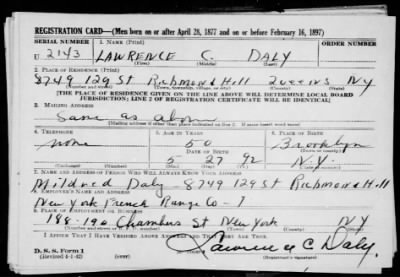 REGISTRATION CARD—(Men born on or after April 28, 1877 and on or before February 16, 1897)
SERIAL NUMBER 1. NAME (Print) ORDER NUMBER
U 2143 LAWRENCE C. DALY
(First) (Middle) (Last)
2. PLACE OF RESIDENCE (Print)
8749 129 St Richmond Hill Queens NY
(Number and street) (Town, township, village, or city) (County) (State)
[THE PLACE OF RESIDENCE GIVEN ON THE LINE ABOVE WILL DETERMINE LOCAL BOARD
JURISDICTION; LINE 2 OF REGISTRATION CERTIFICATE WILL BE IDENTICAL]
3. MAILING ADDRESS
Same as above
[Mailing address if other than place indicated on line 2. If same insert word same]
4. TELEPHONE 5. AGE IN YEARS 6. PLACE OF BIRTH
none 50 Brooklyn
DATE OF BIRTH (Town or county)
5 27 92 N.Y.
(Exchange) (Number) (Mo.) (Day) (Yr.) (State or country)
7. NAME AND ADDRESS OF PERSON WHO WILL ALWAYS KNOW YOUR ADDRESS
Mildred Daly - 8749 129 St Richmond Hill
8. EMPLOYER'S NAME AND ADDRESS
New York French Range Co -
9. PLACE OF EMPLOYMENT OR BUSINESS
188-190 Chambers St New York NY
(Number and street or R. F. D. number) (Town) (County) (State)
I AFFIRM THAT I HAVE VERIFIED ABOVE ANSWERS AND THAT THEY ARE TRUE.
D. S. S. Form 1
(Revised 4-1-42) Lawrence C Daly